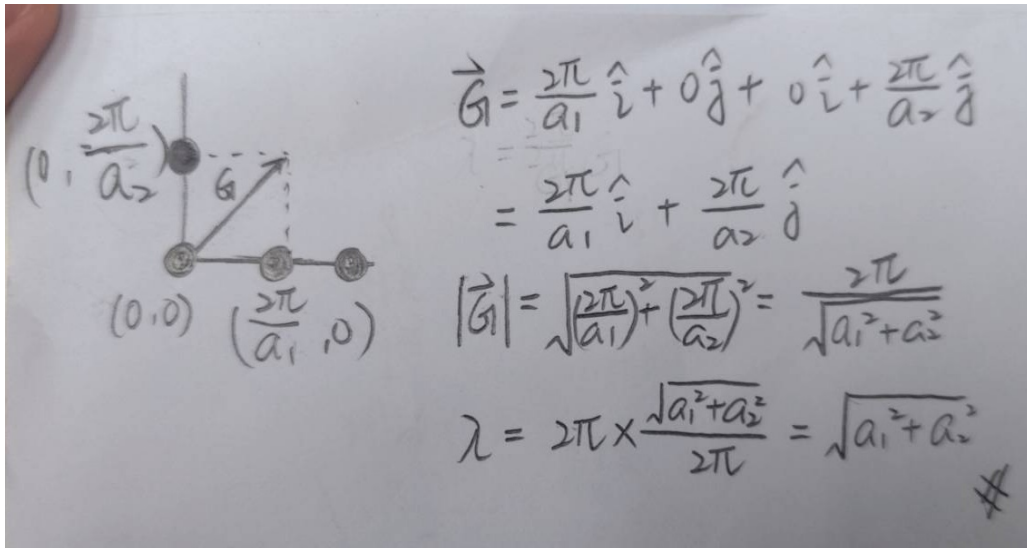 (0, 2π/a₂)
G
(0,0) (2π/a₁, 0)
G⃗ = 2π/a₁ î + 0ĵ + 0î + 2π/a₂ ĵ
= 2π/a₁ î + 2π/a₂ ĵ
|G⃗| = √((2π/a₁)² + (2π/a₂)²) = 2π/√(a₁² + a₂²)
λ = 2π × √(a₁² + a₂²)/2π = √(a₁² + a₂²)